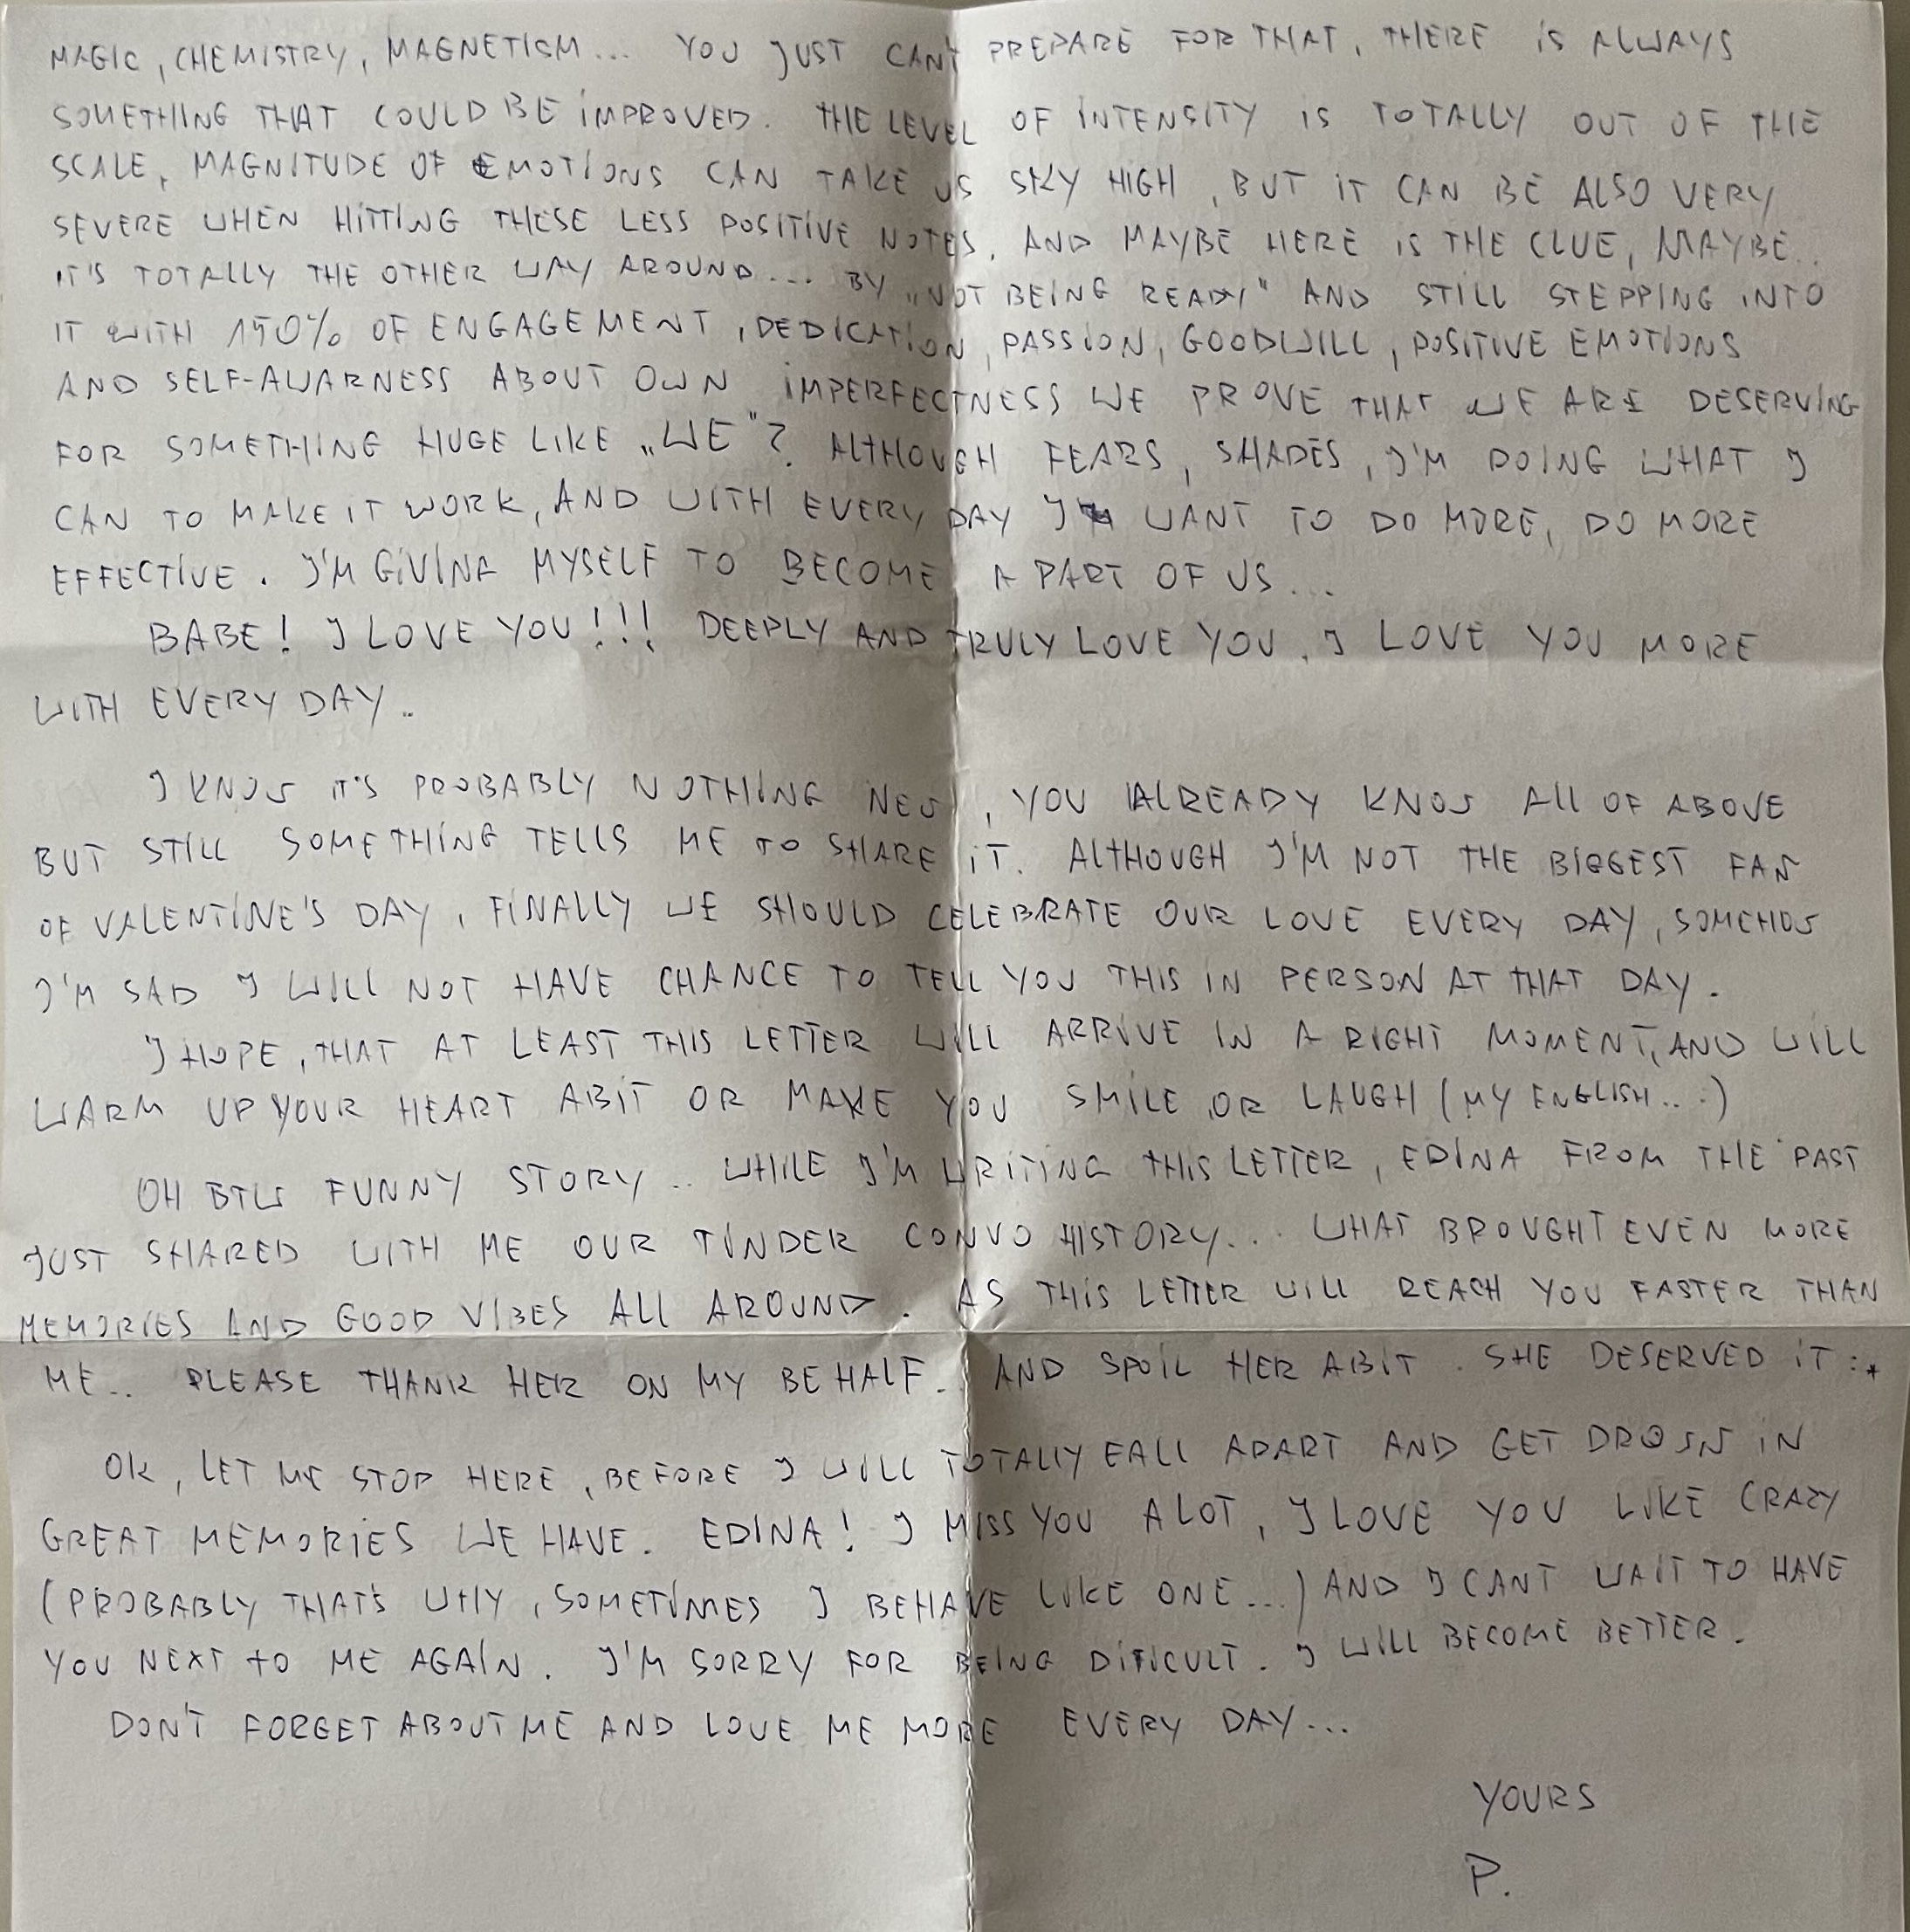 MAGIC, CHEMISTRY, MAGNETISM... YOU JUST CAN'T PREPARE FOR THAT, THERE IS ALWAYS
SOMETHING THAT COULD BE IMPROVED. THE LEVEL OF INTENSITY IS TOTALLY OUT OF THE
SCALE, MAGNITUDE OF EMOTIONS CAN TAKE US SKY HIGH, BUT IT CAN BE ALSO VERY
SEVERE WHEN HITTING THESE LESS POSITIVE NOTES. AND MAYBE HERE IS THE CLUE, MAYBE..
IT'S TOTALLY THE OTHER WAY AROUND... BY „NOT BEING READY" AND STILL STEPPING INTO
IT WITH 150% OF ENGAGEMENT, DEDICATION, PASSION, GOODWILL, POSITIVE EMOTIONS
AND SELF-AWARNESS ABOUT OWN IMPERFECTNESS WE PROVE THAT WE ARE DESERVING
FOR SOMETHING HUGE LIKE „WE"? ALTHOUGH FEARS, SHADES, I'M DOING WHAT I
CAN TO MAKE IT WORK, AND WITH EVERY DAY I WANT TO DO MORE, DO MORE
EFFECTIVE. I'M GIVING MYSELF TO BECOME A PART OF US...
BABE! I LOVE YOU!!! DEEPLY AND TRULY LOVE YOU. I LOVE YOU MORE
WITH EVERY DAY..
I KNOW IT'S PROBABLY NOTHING NEW, YOU ALREADY KNOW ALL OF ABOVE
BUT STILL SOMETHING TELLS ME TO SHARE IT. ALTHOUGH I'M NOT THE BIGGEST FAN
OF VALENTINE'S DAY, FINALLY WE SHOULD CELEBRATE OUR LOVE EVERY DAY, SOMEHOW
I'M SAD I WILL NOT HAVE CHANCE TO TELL YOU THIS IN PERSON AT THAT DAY.
I HOPE, THAT AT LEAST THIS LETTER WILL ARRIVE IN A RIGHT MOMENT, AND WILL
WARM UP YOUR HEART ABIT OR MAKE YOU SMILE OR LAUGH (MY ENGLISH.. :)
OH BTW FUNNY STORY.. WHILE I'M WRITING THIS LETTER, EDINA FROM THE PAST
JUST SHARED WITH ME OUR TINDER CONVO HISTORY... WHAT BROUGHT EVEN MORE
MEMORIES AND GOOD VIBES ALL AROUND. AS THIS LETTER WILL REACH YOU FASTER THAN
ME.. PLEASE THANK HER ON MY BEHALF.. AND SPOIL HER ABIT. SHE DESERVED IT :*
OK, LET ME STOP HERE, BEFORE I WILL TOTALLY FALL APART AND GET DROWN IN
GREAT MEMORIES WE HAVE. EDINA! I MISS YOU A LOT, I LOVE YOU LIKE CRAZY
(PROBABLY THAT'S WHY, SOMETIMES I BEHAVE LIKE ONE...) AND I CANT WAIT TO HAVE
YOU NEXT TO ME AGAIN. I'M SORRY FOR BEING DIFICULT. I WILL BECOME BETTER.
DON'T FORGET ABOUT ME AND LOVE ME MORE EVERY DAY...
YOURS
P.